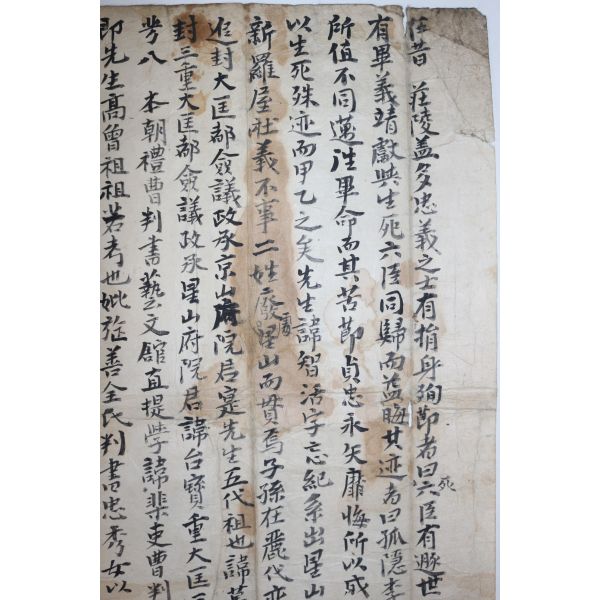 在昔 莊陵盖多忠義之士有捐身殉節者曰死六臣有遯世
有畢義靖獻與生死六臣同歸而益晦其迹者曰孤隱李
所值不同蓮泩畢命而其苦節貞忠永矢靡悔所以成
以生死殊迹而甲乙之矣先生諱智活字忘紀系出星山
新羅屋社義不事二姓廢處星山而貫焉子孫在麗代
追封大匡都僉議政承京山府院君寔先生五代祖也諱
封三重大匡都僉議政承星山府院君諱台寶重大匡
考八 本朝禮曹判書藝文館直提學諱棐吏曹判
即先生高曾祖祖若考也妣旌善全氏判書忠秀女以